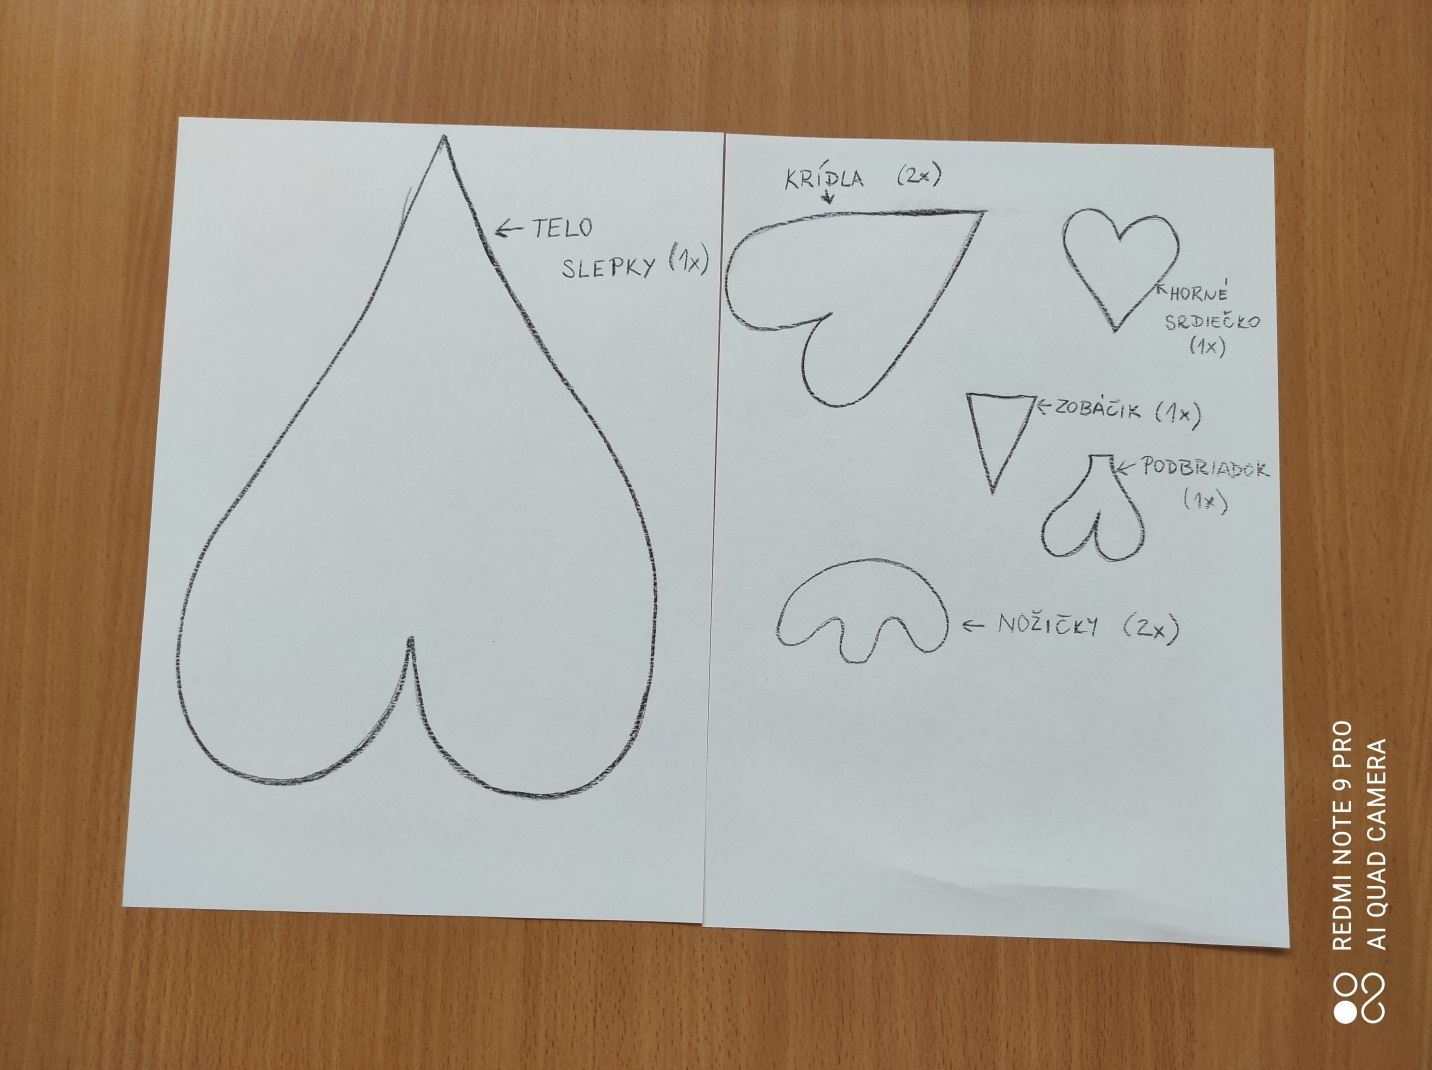 ← TELO
SLEPKY (1x)
KRÍDLA (2x)
HORNÉ
SRDIEČKO
(1x)
← ZOBÁČIK (1x)
← PODBRIADOK
(1x)
← NOŽIČKY (2x)
REDMI NOTE 9 PRO
AI QUAD CAMERA